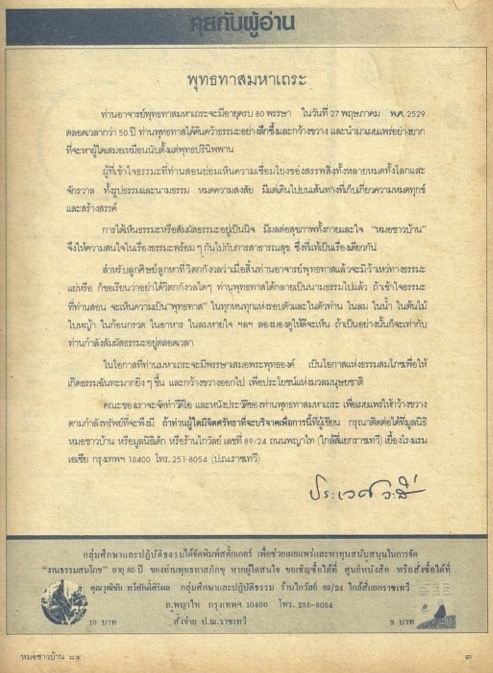 คุยกับผู้อ่าน
พุทธทาสมหาเถระ
ท่านอาจารย์พุทธทาสมหาเถระจะมีอายุครบ 80 พรรษา ในวันที่ 27 พฤษภาคม พ.ศ. 2529
ตลอดเวลากว่า 50 ปี ท่านพุทธทาสได้ค้นคว้าธรรมะอย่างลึกซึ้งและกว้างขวาง และนำมาเผยแพร่อย่างยาก
ที่จะหาผู้ใดเสมอเหมือนนับตั้งแต่พุทธปรินิพพาน
ผู้ที่เข้าใจธรรมะที่ท่านสอนย่อมเห็นความเชื่อมโยงของสรรพสิ่งทั้งหลายหมดทั้งโลกและ
จักรวาล ทั้งรูปธรรมและนามธรรม หมดความสงสัย มีแต่เดินไปบนเส้นทางที่เก็บเกี่ยวความหมดทุกข์
และสร้างสรรค์
การได้เห็นธรรมะหรือสัมผัสธรรมะอยู่เป็นนิจ มีผลต่อสุขภาพทั้งกายและใจ "หมอชาวบ้าน"
จึงให้ความสนใจในเรื่องธรรมะพร้อม ๆ กันไปกับการสาธารณสุข ซึ่งที่แท้เป็นเรื่องเดียวกัน
สำหรับลูกศิษย์ลูกหาที่วิตกกังวลว่าเมื่อสิ้นท่านอาจารย์พุทธทาสแล้วจะมิว้าเหว่ทางธรรมะ
แย่หรือ ก็ขอเรียนว่าอย่าได้วิตกกังวลใดๆ ท่านพุทธทาสได้กลายเป็นนามธรรมไปแล้ว ถ้าเข้าใจธรรมะ
ที่ท่านสอน จะเห็นความเป็น"พุทธทาส" ในทุกหนทุกแห่งรอบตัวและในตัวท่าน ในลม ในน้ำ ในต้นไม้
ใบหญ้า ในก้อนกรวด ในอาหาร ในลมหายใจ ฯลฯ ลองมองดูให้ดีจะเห็น ถ้าเป็นอย่างนั้นก็จะเท่ากับ
ท่านกำลังสัมผัสธรรมะอยู่ตลอดเวลา
ในโอกาสที่ท่านมหาเถระจะมีพรรษาเสมอพระพุทธองค์ เป็นโอกาสแห่งธรรมสมโภชเพื่อให้
เกิดธรรมฉันทะมากยิ่ง ๆ ขึ้น และกว้างขวางออกไป เพื่อประโยชน์แห่งมวลมนุษยชาติ
คณะของเราจะจัดทำวีดีโอ และหนังประวัติของท่านพุทธทาสมหาเถระ เพื่อเผยแพร่ให้กว้างขวาง
ตามกำลังทรัพย์ที่จะพึงมี ถ้าท่านผู้ใดมีจิตศรัทธาที่จะบริจาคเพื่อการนี้ที่ผู้เขียน กรุณาติดต่อได้ที่มูลนิธิ
หมอชาวบ้าน หรือมูลนิธิเด็ก หรือร้านไกวัลย์ เลขที่ 89/24 ถนนพญาไท (ใกล้สี่แยกราชเทวี) เยื้องโรงแรม
เอเซีย กรุงเทพฯ 10400 โทร. 251-8054 (ปณ.ราชเทวี)
ประเวศ วะสี
กลุ่มศึกษาและปฏิบัติธรรมได้จัดพิมพ์สติ๊กเกอร์ เพื่อช่วยเผยแพร่และหาทุนสนับสนุนในการจัด
"งานธรรมสมโภช" อายุ 80 ปี ของท่านพุทธทาสภิกขุ หากผู้ใดสนใจ ขอเชิญซื้อได้ที่ ศูนย์หนังสือ หรือสั่งซื้อได้ที่
คุณวุฒิชัย ทวีศักดิ์ศิริผล กลุ่มศึกษาและปฏิบัติธรรม ร้านไกวัลย์ 89/24 ใกล้สี่แยกราชเทวี
ถ.พญาไท กรุงเทพฯ 10400 โทร. 251-8054
10 บาท สั่งจ่าย ป.ณ.ราชเทวี 3 บาท
หมอชาวบ้าน ๘๔ ๓